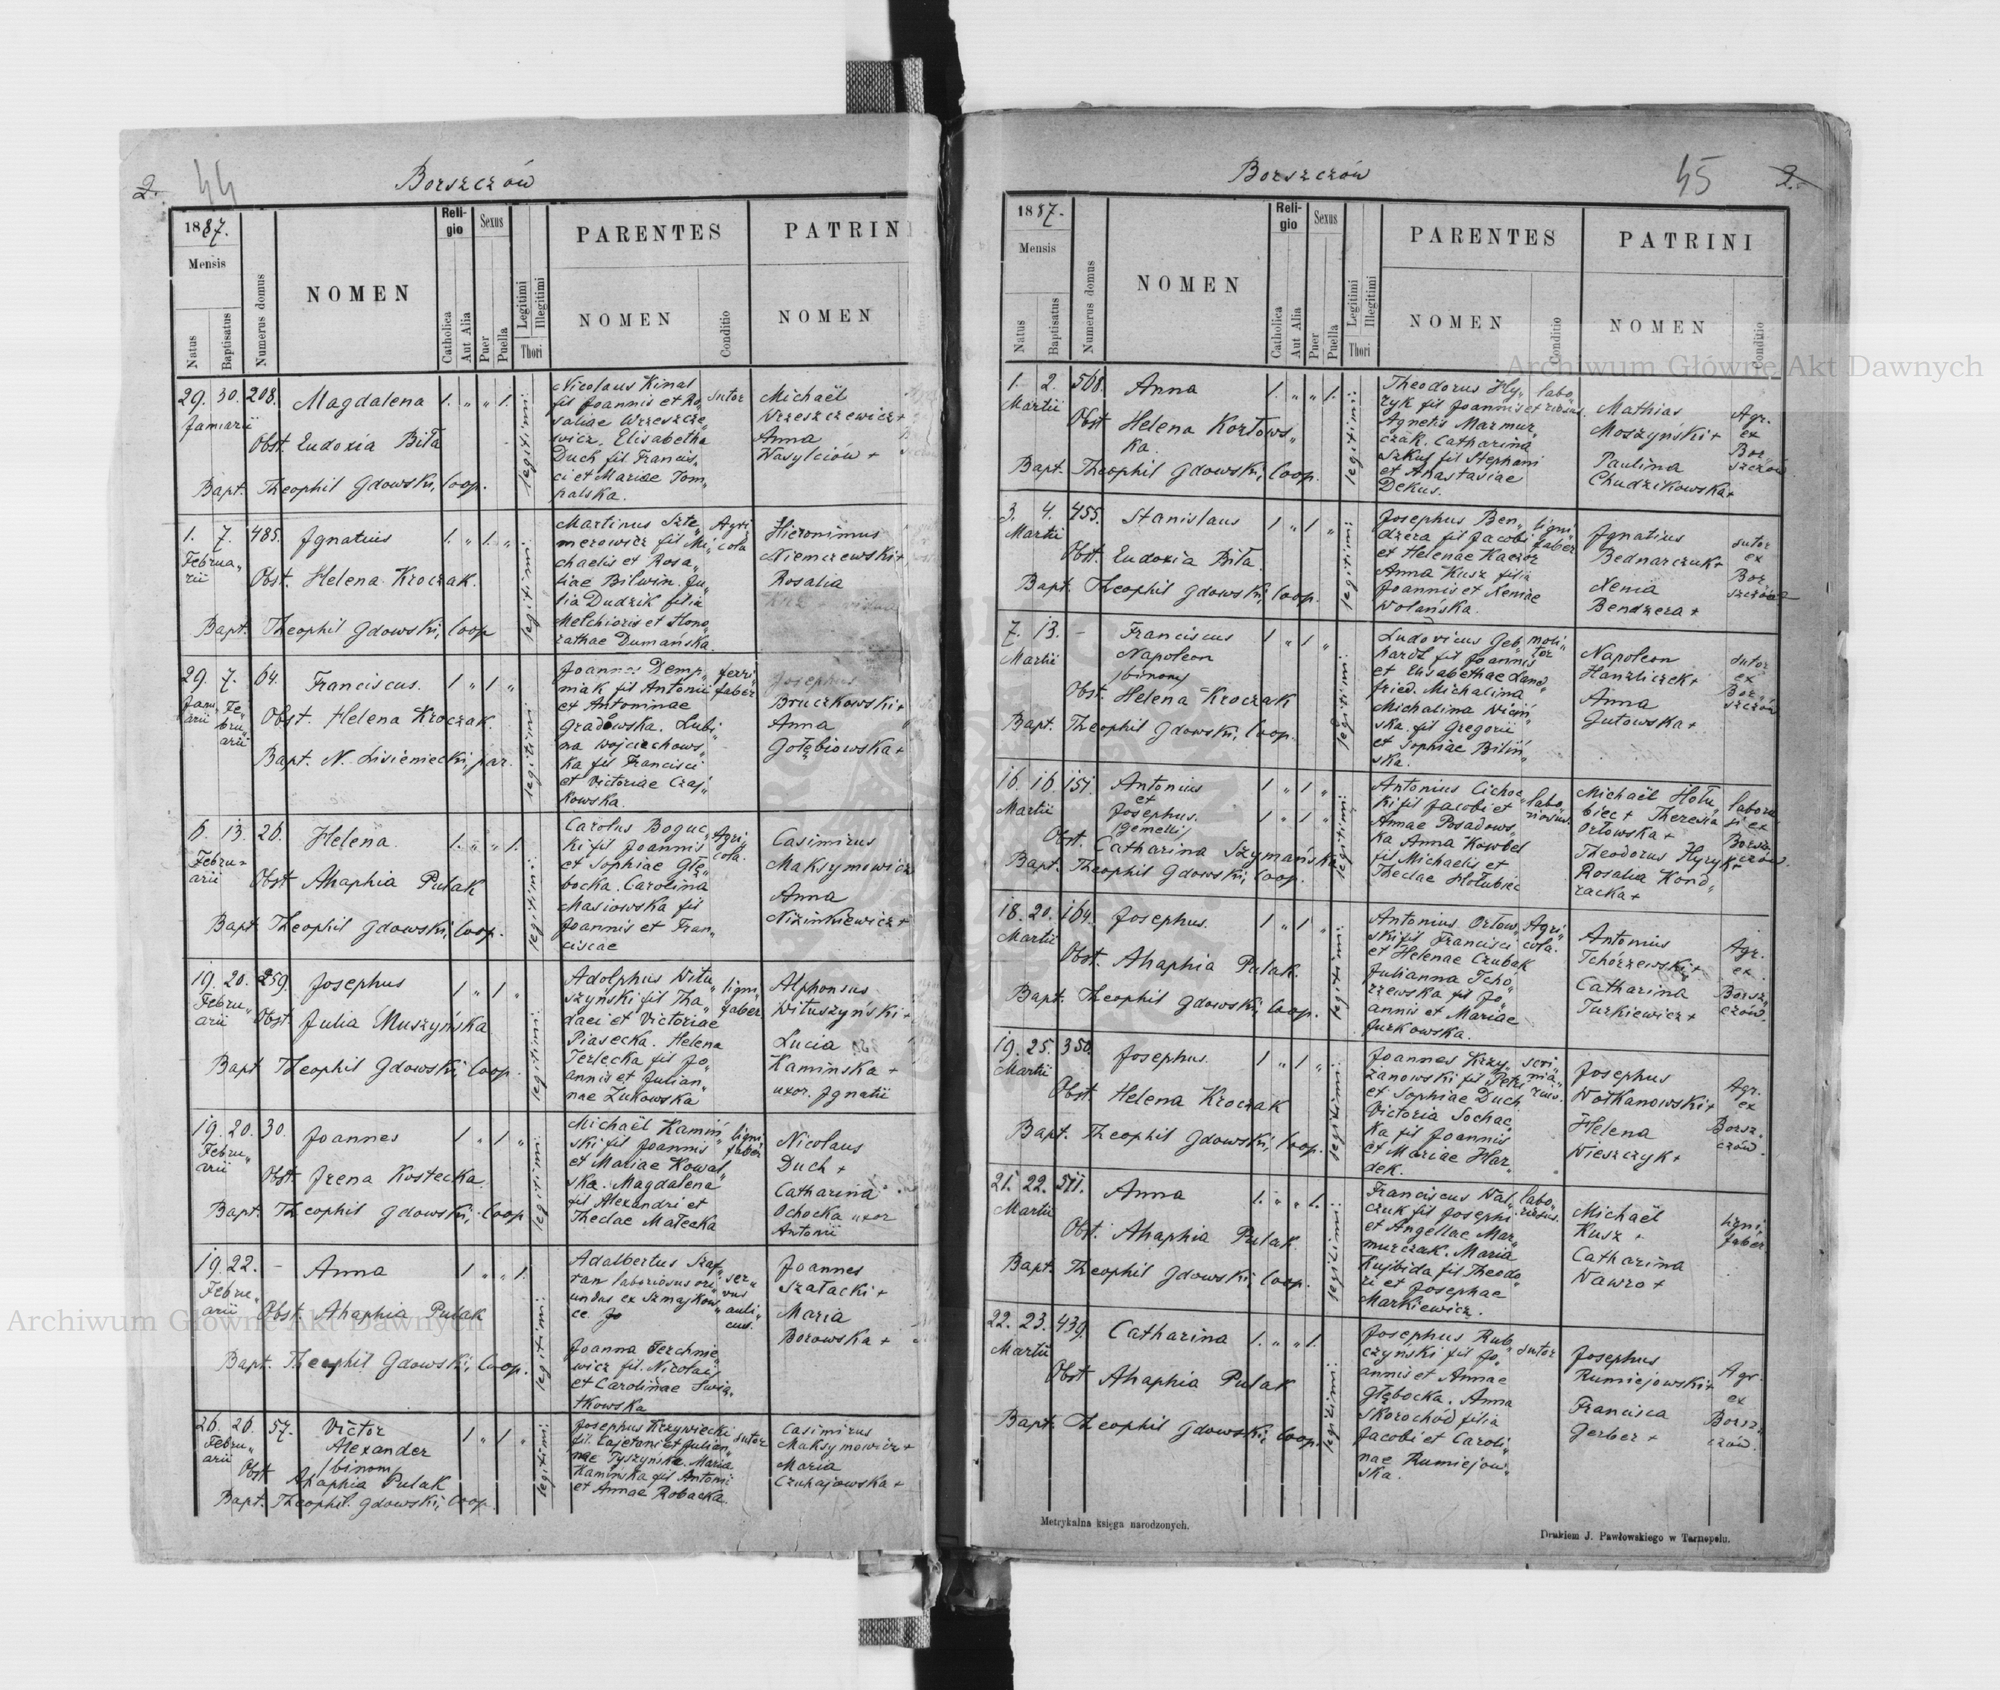 2. 44
Borszczów
1887.
Mensis
Natus
Baptisatus
Numerus domus
NOMEN
Religio
Catholica
Aut Alia
Sexus
Puer
Puella
Legitimi
Illegitimi
Thori
PARENTES
NOMEN
Conditio
PATRINI
NOMEN
29. 30. 208. Magdalena 1. „ „ 1.
Januarii
Obst. Eudoxia Biła
Bapt. Theophil Gdowski, Coop.
legitimi
Nicolaus Kinal sutor
fil Joannis et Ro„
saliae Wrzeszcze„
wicz. Elisabetha
Duch fil Francis„
ci et Mariae Tom„
palska.
Michaël
Wrzeszczewicz +
Anna
Wasylciów +
1. 7. 485. Ignatius 1. „ 1. „
Februa„
rii
Obst. Helena Kroczak.
Bapt. Theophil Gdowski, Coop
legitimi
Martinus Szte„ Agri„
merowicz fil Mi„ cola
chaelis et Rosa„
liae Bilwin. Ju„
lia Dudzik filia
Melchioris et Hono„
rathae Dumańska.
Hieronimus
Niemczewski +
Rosalia
29. 7. 64. Franciscus. 1 „ 1 „
Janu„ Fe„
arii bru„
arii
Obst. Helena Kroczak.
Bapt. N. Lisieniecki, par.
legitimi
Joannes Demp„ ferri„
niak fil Antonii faber
et Antoninae
Gradowska. Lubi„
na Wojciechows„
ka fil Francisci
et Victoriae Czaj„
kowska.
Josephus
Bruczkowski +
Anna
Gołębiowska +
6. 13. 26. Helena. 1. „ „ 1.
Febru„
arii
Obst Ahaphia Pulak
Bapt. Theophil Gdowski, Coop.
legitimi
Carolus Boguc„ Agri„
ki fil Joannis cola.
et Sophiae Głę„
bocka. Carolina
Masiowska fil
Joannis et Fran„
ciscae
Casimirus
Maksymowicz
Anna
Niżinkiewicz +
19. 20. 259. Josephus 1 „ 1 „
Febru„
arii
Obst. Julia Muszyńska
Bapt Theophil Gdowski, Coop.
legitimi
Adolphus Witu„ ligni„
szyński fil Tha„ faber
daei et Victoriae
Piasecka. Helena
Terlecka fil Jo„
annis et Julian„
nae Żukowska
Alphonsus
Wituszyński +
Lucia
Kamińska +
uxor. Ignatii
19. 20. 30. Joannes 1 „ 1 „
Febru„
arii
Obst Irena Kostecka.
Bapt. Theophil Gdowski, Coop
legitimi
Michaël Kamiń„ ligni„
ski fil Joannis faber
et Mariae Kowal„
ska. Magdalena
fil Alexandri et
Theclae Małecka
Nicolaus
Duch +
Catharina
Ochocka uxor
Antonii
19. 22. - Anna 1 „ „ 1.
Febru„
arii
Obst Ahaphia Pulak
Bapt. Theophil Gdowski, Coop.
legitimi
Adalbertus Szaf„ ser„
ran laboriosus ori„ vus
undus ex Szmajkow„ auli„
ce Jo cus.
Joanna Ferchnie„
wicz fil. Nicolai
et Carolinae Świą„
tkowska
Joannes
Szałacki +
Maria
Borowska +
26. 26. 57. Victor 1 „ 1 „
Febru„ Alexander
arii /binom/
Obst Ahaphia Pulak
Bapt. Theophil. Gdowski, Coop.
legitimi
Josephus Krzywiecki sutor
fil. Cajetani et Julian„
nae Tyszyńska. Maria
Kamińska fil Antoni
et Annae Robacka.
Casimirus
Maksymowicz +
Maria
Czuhajowska +
Borszczów
45 2.
1887.
Mensis
Natus
Baptisatus
Numerus domus
NOMEN
Religio
Catholica
Aut Alia
Sexus
Puer
Puella
Legitimi
Illegitimi
Thori
PARENTES
NOMEN
Conditio
PATRINI
NOMEN
Conditio
1. 2. 568. Anna 1. „ „ 1.
Martii
Obst Helena Kozłows„
ka.
Bapt. Theophil Gdowski, Coop.
legitimi
Theodorus Hy„ labo„
ryk fil Joannis et riosus.
Agnetis Marmur„
czak. Catharina
Szkuj fil Stephani
et Anastasiae
Dekus.
Mathias
Moszyński +
Paulina
Chudzikowska +
Agr.
ex
Bor„
szczów
3. 4. 455. Stanislaus 1 „ 1 „
Martii
Obst. Eudoxia Biła.
Bapt. Theophil Gdowski, Coop.
legitimi
Josephus Ben„ ligni„
dzera fil Jacobi faber
et Helenae Kaczor
Anna Kusz filia
Joannis et Xeniae
Wolańska.
Ignatius
Bednarczuk +
Xenia
Bendzera +
sutor
ex
Bor„
szczów
7. 13. - Franciscus 1 „ 1 „
Martii Napoleon
/binom/
Obst. Helena Kroczak
Bapt. Theophil Gdowski, Coop.
legitimi
Ludovicus Geb„ moli„
hardt fil Joannis tor
et Elisabethae Land„
fried. Michalina
Michalina Wiciń„
ska. fil Gregorii
et Sophiae Biliń„
ska.
Napoleon
Hanzliczek +
Anna
Gutowska +
sutor
ex
Bor„
szczów
16. 16. 151. Antonius 1 „ 1 „
Martii et
Josephus. 1 „ 1 „
/gemelli/
Obst. Catharina Szymańska
Bapt. Theophil Gdowski, Coop.
legitimi
Antonius Cichoc„ labo„
ki fil Jacobi et riosus.
Annae Posadows„
ka Anna Kowbel
fil Michaelis et
Theclae Hołubiec
Michaël Hołu„
biec + Theresia
Orłowska +
Theodorus Hyryk +
Rosalia Kond„
racka +
labora
Borsz„
czów.
18. 20. 164. Josephus. 1 „ 1 „
Martii
Obst. Ahaphia Pulak.
Bapt. Theophil Gdowski, Coop.
legitimi
Antonius Orłow„ Agri„
ski fil Francisci cola.
et Helenae Czubak
Julianna Tchó„
rzewska fil Jo„
annis et Mariae
Jurkowska.
Antonius
Tchórzewski +
Catharina
Turkiewicz +
Agr.
ex
Borsz„
czów.
19. 25. 350. Josephus. 1 „ 1 „
Martii
Obst Helena Kroczak
Bapt. Theophil Gdowski, Coop.
legitimi
Joannes Krzy„ scri„
żanowski fil Petri nia„
et Sophiae Duch. rius.
Victoria Sochac„
ka fil Joannis
et Mariae Har„
dek.
Josephus
Wołkanowski +
Helena
Wieszczyk +
Agr.
ex
Borsz„
czów.
21. 22. 511. Anna 1. „ „ 1.
Martii
Obst. Ahaphia Pulak.
Bapt. Theophil Gdowski, Coop.
legitimi
Franciscus Wal„ labo„
czuk fil Josephi riosus.
et Angellae Mar„
murczak. Maria
Kujbida fil Theodo„
ri et Josephae
Markiewicz.
Michaël
Kusz +
Catharina
Wawro +
ligni„
faber.
22. 23. 439. Catharina 1. „ „ 1.
Martii
Obst Ahaphia Pulak
Bapt. Theophil Gdowski, Coop.
legitimi
Josephus Rub„ sutor
czyński fil Jo„
annis et Annae
Głębocka. Anna
Skorochód filia
Jacobi et Caroli„
nae Rumiejow„
ska.
Josephus
Rumiejowski +
Francisca
Gerber +
Agr.
ex
Borsz„
czów.
Metrykalna księga narodzonych.
Drukiem J. Pawłowskiego w Tarnopolu.
Archiwum Główne Akt Dawnych
Archiwum Główne Akt Dawnych